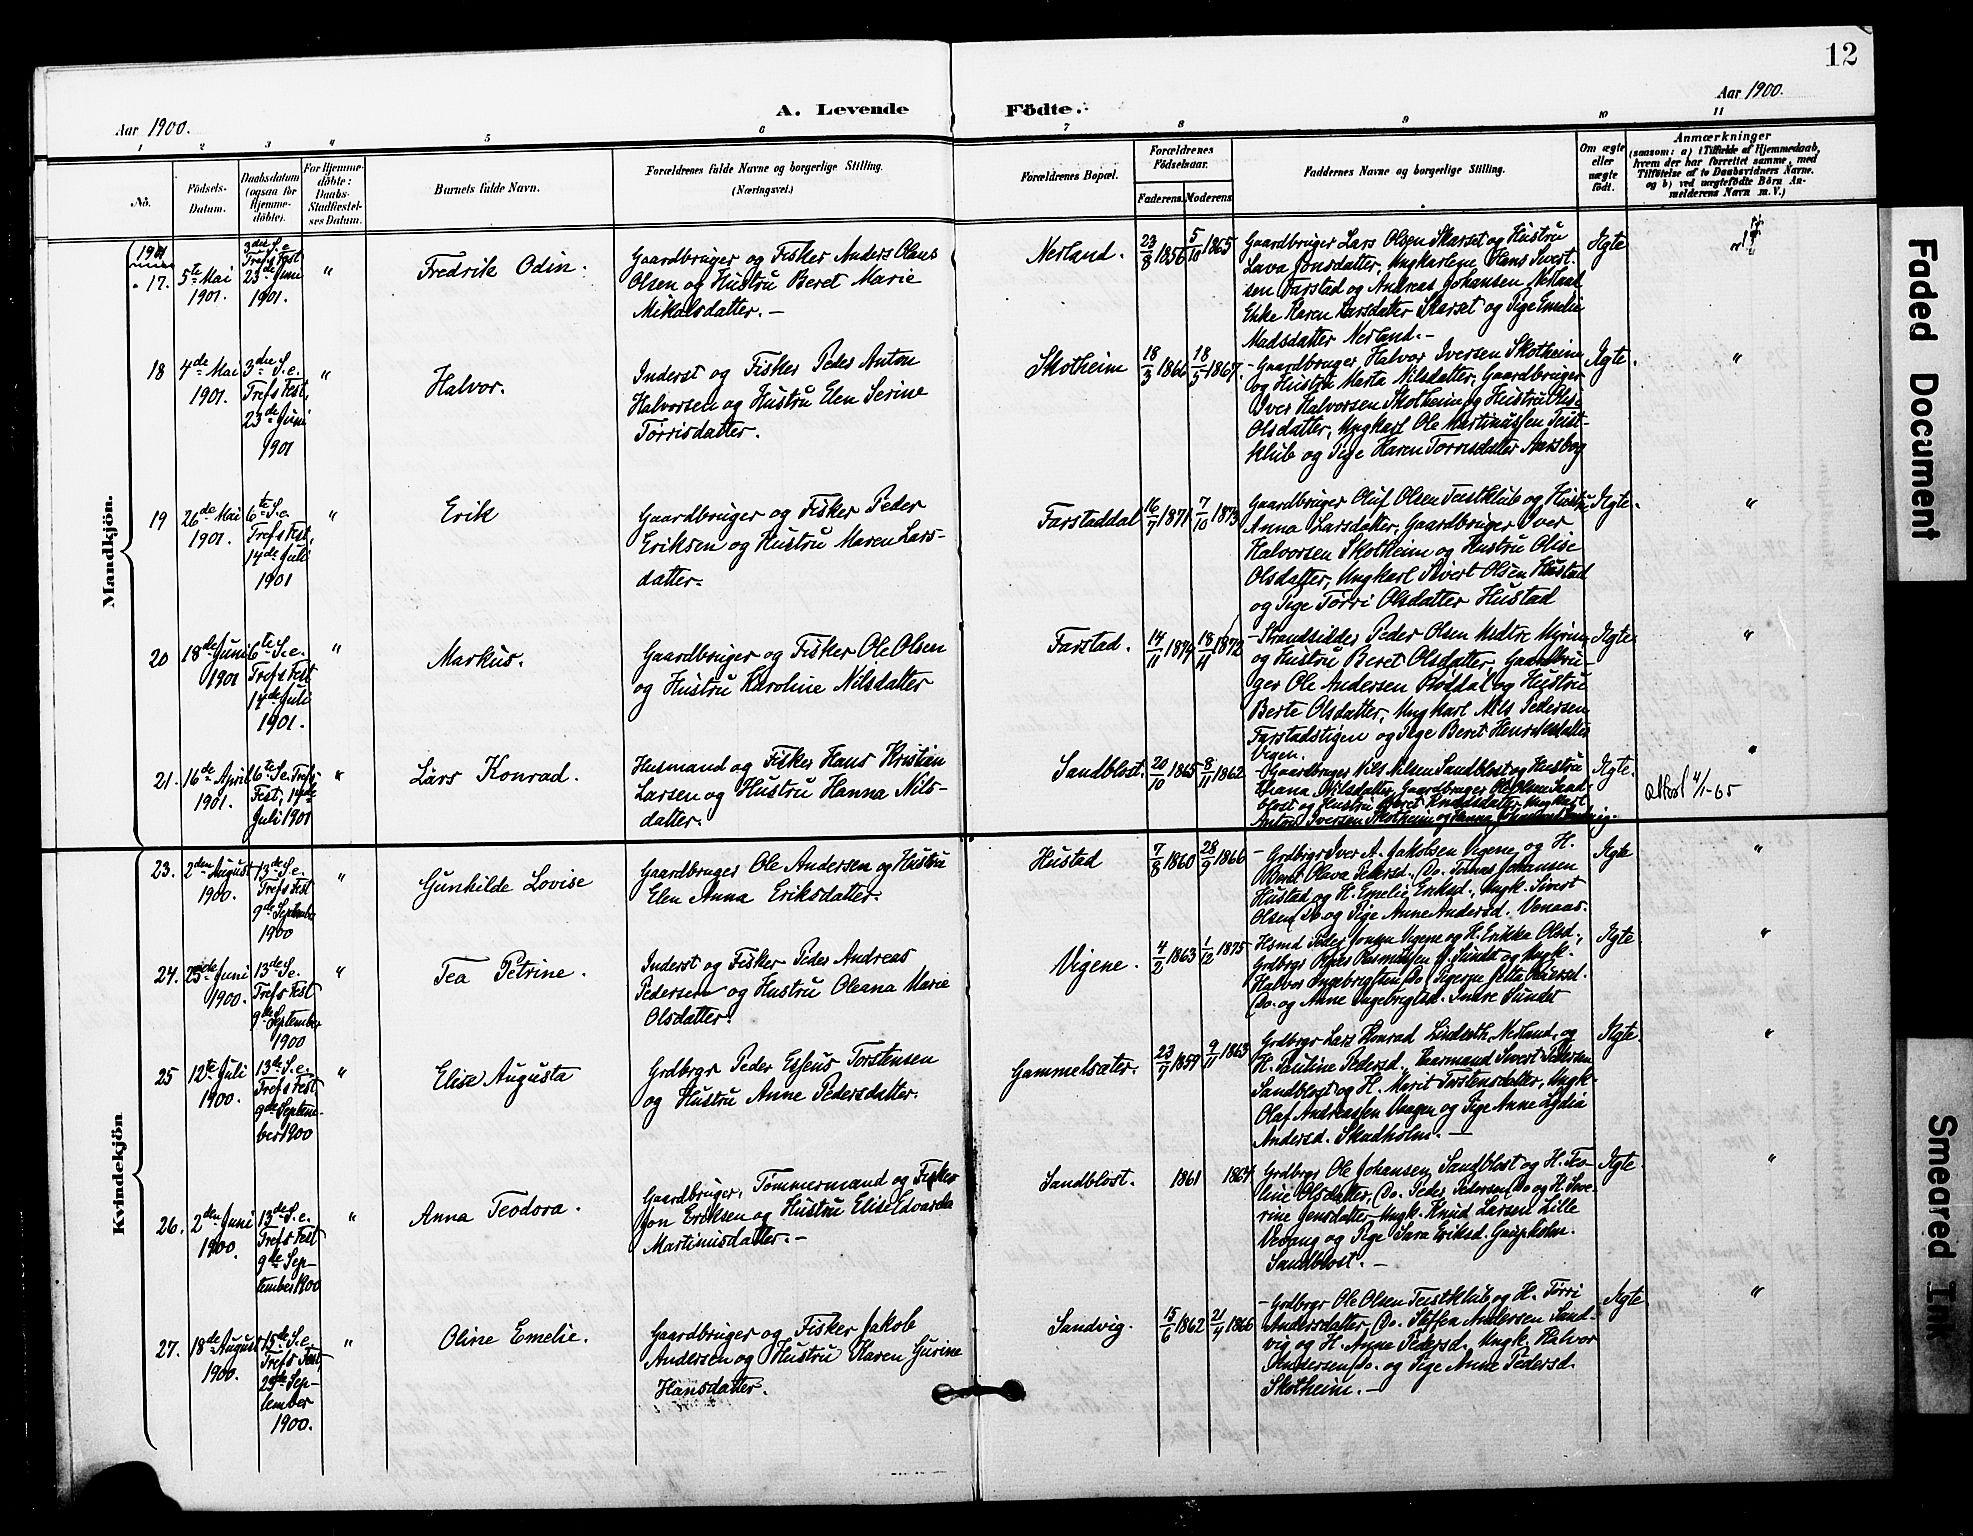 12
Aar 1900.
A. Levende Födte.
Aar 1900.
1 2 3 4 5 6 7 8 9 10 11
No.
Födsels-Datum.
Daabsdatum (ogsaa for Hjemmedöbte).
For Hjemmedöbte: Daabs-Stadfæstelses Datum.
Barnets fulde Navn.
Forældrenes fulde Navne og borgerlige Stilling. (Næringsvei.)
Forældrenes Bopæl.
Forældrenes Födselsaar.
Faderens. Moderens.
Faddernes Navne og borgerlige Stilling.
Om ægte eller uægte födt.
Anmærkninger
(saasom: a) i Tilfælde af Hjemmedaab, hvem der har forrettet samme, med Tilföielse af to Daabsvidners Navne. og b) ved uægtefödte Börn Anmelderens Navn m. V.)
Mandkjön.
1901
17. 5te Mai 1901. 3die S. e. Tref's Fest 23de Juni 1901. "
Fredrik Odin.
Gaardbruger og Fisker Anders Olaus
Olsen og Hustru Beret Marie
Mikalsdatter. —
Nerland. 23/8 1856 5/10 1865
Gaardbruger Lars Olsen Skarset og Hustru
Lava Jonsdatter, Ungkarlene Hans Sivert-
sen Farstad og Andreas Johansen Nerland
Enke Karen Larsdatter Skarset og Pige Emelie
Madsdatter Nerland. —
Ægte
18 4de Mai 1901. 3die S. e. Tref's Fest, 23de Juni 1901 "
Halvor.
Inderst og Fisker Peder Anton
Halvorsen og Hustru Elen Serine
Torrisdatter.
Skotheim 18/3 1866 18/5 1867.
- Gaardbruger Halvor Iversen Skotheim
og Hustru Marta Nilsdatter, Gaardbruger
Iver Halvorsen Skotheim og Hustru Olise
Olsdatter, Ungkarl Ole Martinussen Teist-
klub og Pige Karen Torrisdatter Aarsbog
Ægte. "
19 26de Mai 1901. 6te S. e. Tref's Fest, 14de Juli 1901 "
Erik
Gaardbruger og Fisker Peder
Eriksen og Hustru Maren Lars-
datter.
Farstaddal 16/7 1871 7/10 1873
Gaardbruger Oluf Olsen Teistklub og Hustru
Anna Larsdatter, Gaardbruger Iver
Halvorsen Skotheim og Hustru Olise
Olsdatter, Ungkarl Sivert Olsen Hustad
og Pige Törri Olsdatter Hustad
Ægte. "
20 18de Juni 1901 6te S. e. Tref's Fest 14de Juli 1901. "
Markus.
Gaardbruger og Fisker Ole Olsen
og Hustru Karoline Nilsdatter
Farstad. 14/11 1874 18/11 1872
- Strandsidder Peder Olsen Nedre Myren
og Hustru Beret Olsdatter, Gaardbru-
ger Ole Andersen Röddal og Hustru
Berte Olsdatter, Ungkarl Nils Pedersen
Farstadstigen og Pige Beret Henriksdatter
Vigen.
Ægte. "
21. 16de April 1901. 6te S. e. Tref's Fest, 14de Juli 1901 "
Lars Konrad.
Husmand og Fisker Hans Kristian
Larsen og Hustru Hanna Nils-
datter.
Sandblost. 20/10 1865 8/11 1862
- Gaardbruger Nils Nilsen Sandblost og Hustru
Nilsdatter, Gaardbruger Ole Olsen Sand-
blost og Hustru Beret Knudsdatter, Ungkarl
Anton Iversen Skotheim og
Ægte. "
attest 4/1-65
Kvindekjön
23. 2den August 1900. 13de S. e. Tref's Fest 9de September 1900 "
Gunhilde Lovise
Gaardbruger Ole Andersen og Hustru
Elen Anna Eriksdatter.
Hustad 7/8 1860 28/9 1866
- Grdbrgr Iver A. Jakobsen Vigene og H.
Beret Olava Pedersd., Do. Tomas Johansen
Hustad og H. Emelie Eriksd., Ungk. Sivert
Olsen Do og Pige Anne Andersd. Venaas.
Ægte "
24. 23de Juni 1900. 13de S. e. Tref's Fest 9de September 1900 "
Tea Petrine.
Inderst og Fisker Peder Andreas
Pedersen og Hustru Oleana Marie
Olsdatter.
Vigene. 4/2 1863 1/12 1875
Hsmd Peder Jonsen Vigene og H. Erikka Olsd.,
Grdbrgr Rasmussen I. Sunde og Ungk.
Halvor Ingebrigtsen Do, Pigerne
Do. og Anne Ingebrigtsd. Indre Sundet
Ægte "
25 12te Juli 1900. 13de S. e. Tref's Fest 9de September 1900 "
Elise Augusta
Grdbrgr Peder Esseus Torstensen
og Hustru Anne Pedersdatter.
Gammelsæter. 23/7 1859 9/11 1863
Grdbrgr Lars Konrad Nerland, og
H. Pauline Pedersd., Kaarmand Sivert Pedersen
Sandblost og H. Marit Torstensdatter, Ungk.
Olaf Andreassen Vaagen og Pige Anne Lydia
Andersd. Skudholm. —
Ægte. "
26. 2den Juni 1900. 13de S. e. Tref's Fest 9de September 1900 "
Anna Teodora.
Gaardbruger, Tommermand og Fisker
Jon Eriksen og Hustru Elise Edvarda
Martinusdatter. —
Sandblost. 1861 1864
Grdbrgr Ole Johansen Sandblost og H. To-
line Olsdatter, Do. Peder Pedersen Do og H. Seve-
rine Jensdatter, Ungk. Knud Larsen Lille
Vevang og Pige Sara Eriksd.
Sandblost. —
Ægte "
27. 18de August 1900. 15de S. e. Tref's Fest 23de September 1900. "
Oline Emelie.
Gaardbruger og Fisker Jakob
Andersen og Hustru Karen Gurine
Hansdatter.
Sandvig. 15/6 1862 21/4 1866
- Grdbrgr Ole Olsen Teistklub og H. Törri
Andersdatter, Do. Steffen Andersen Sand-
vig og H. Anne Pedersd. Ungk. Halvor
Andersen Do. og Pige Anne Pedersd.
Skotheim. —
Ægte "
Faded Document
Smeared Ink